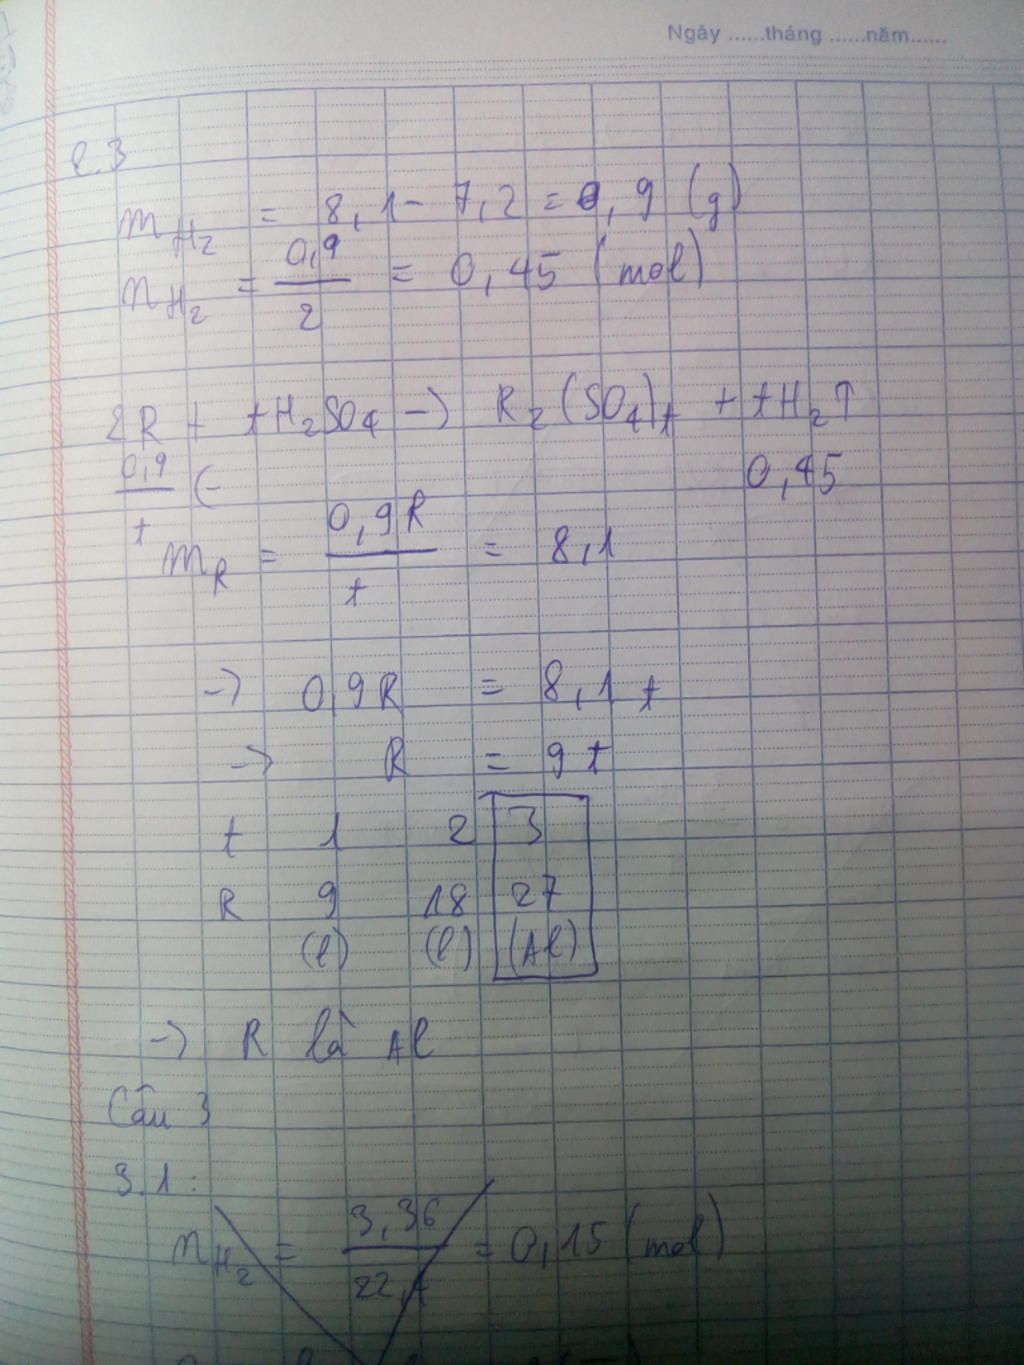 Ngày ......tháng ......năm......
2.3
mH₂ = 8,1 - 7,2 = 0,9 (g)
nH₂ = 0,9/2 = 0,45 (mol)
2R + tH₂SO₄ → R₂(SO₄)t + tH₂↑
0,9/t ← 0,45
mR = 0,9R/t = 8,1
→ 0,9R = 8,1t
→ R = 9t
t 1 2 3
R 9 18 27
(l) (l) (Al)
→ R là Al
Câu 3
3.1:
nH₂ = 3,36/22,4 = 0,15 (mol)